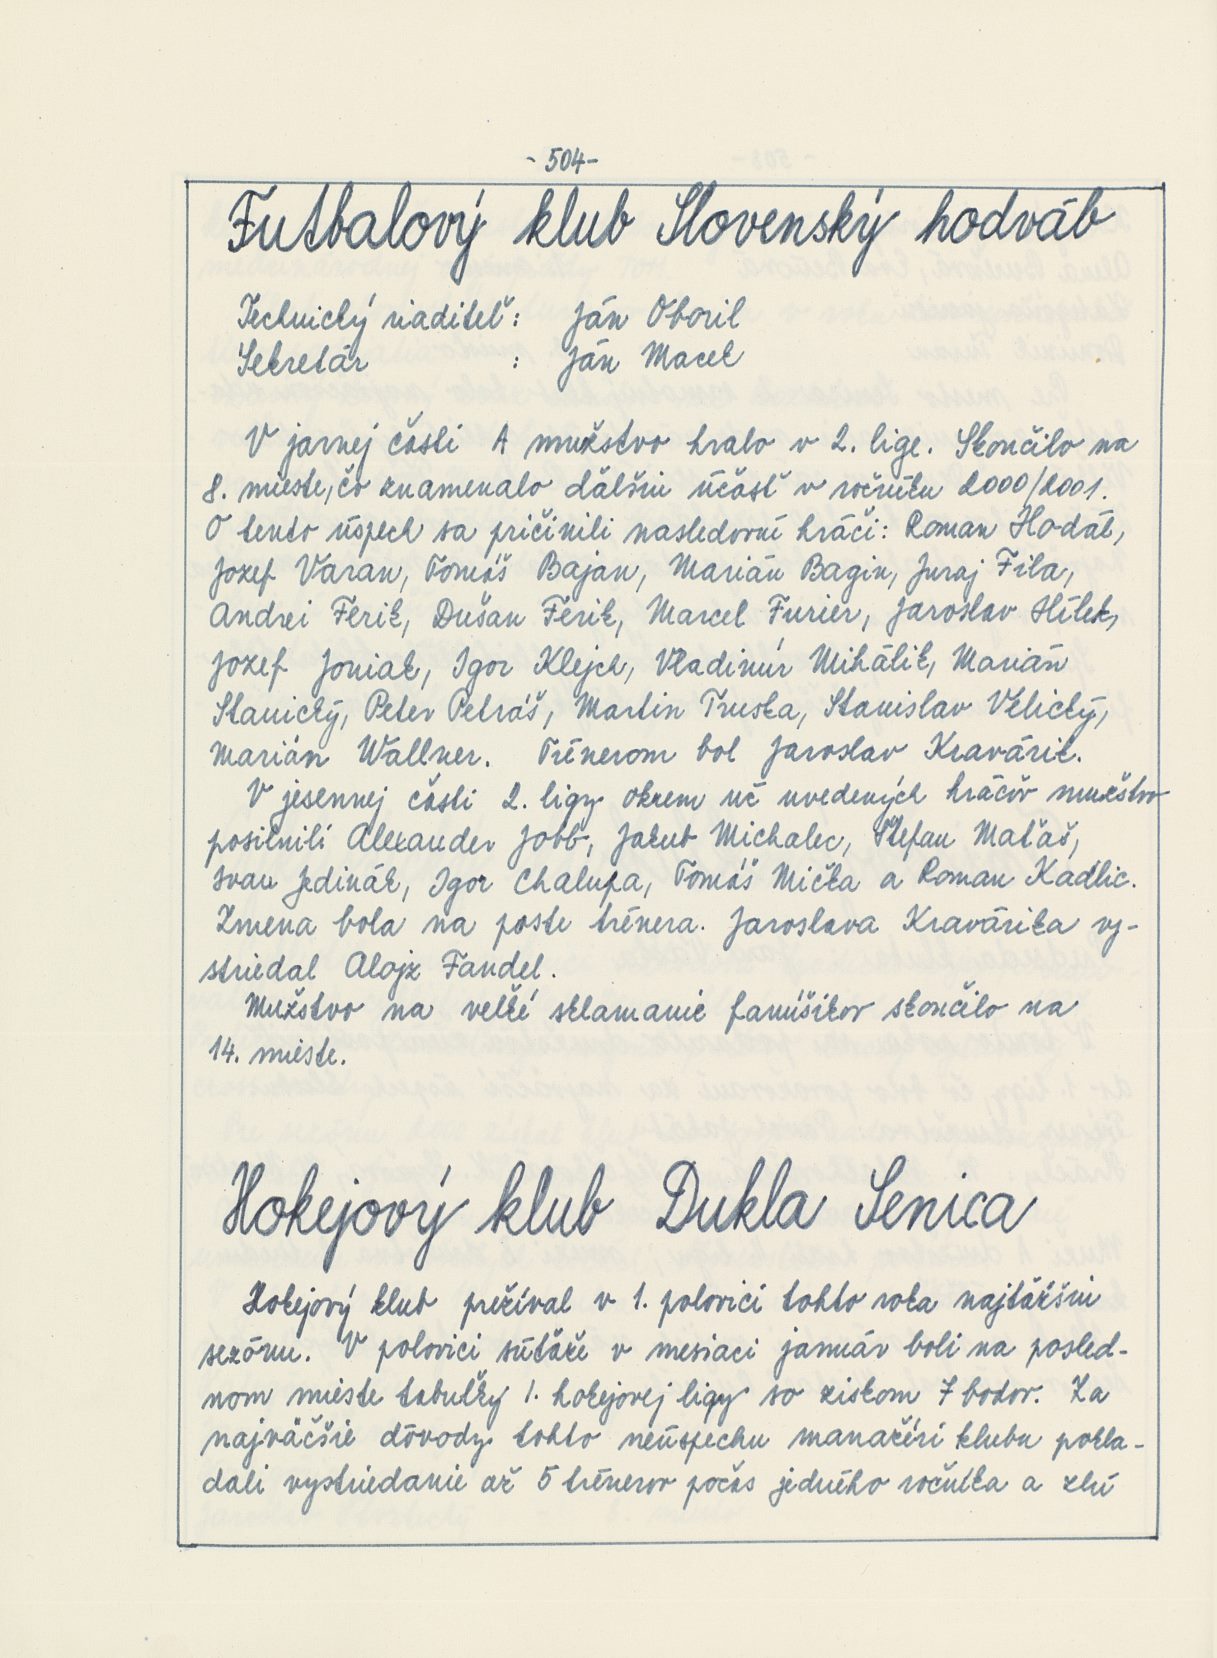 - 504 -
Futbalový klub Slovenský hodváb
Technický riaditeľ: Ján Oboril
Sekretár : Ján Macek
V jarnej časti A mužstvo hralo v 2. lige. Skončilo na
8. mieste, čo znamenalo ďalšiu účasť v ročníku 2000/2001.
O tento úspech sa pričinili nasledovní hráči: Roman Hodál,
Jozef Varan, Tomáš Bajan, Marián Bagin, Juraj Fila,
Andrei Ferik, Dušan Ferik, Marcel Furier, Jaroslav Hílek,
Jozef Joniak, Igor Klejch, Vladimír Mihálik, Marián
Stanický, Peter Petráš, Martin Truska, Stanislav Velický,
Marián Wallner. Trénerom bol Jaroslav Kravárik.
V jesennej časti 2. ligy okrem už uvedených hráčov mužstvo
posilnili Alexander Jobb, Jakub Michalec, Štefan Maťaš,
Ivan Jedinák, Igor Chalupa, Tomáš Mička a Roman Kadlic.
Zmena bola na poste trénera. Jaroslava Kravárika vy-
striedal Alojz Fandel.
Mužstvo na veľké sklamanie fanúšikov skončilo na
14. mieste.
Hokejový klub Dukla Senica
Hokejový klub prežíval v 1. polovici tohto roka najťažšiu
sezónu. V polovici súťaže v mesiaci január boli na posled-
nom mieste tabuľky 1. hokejovej ligy so ziskom 7 bodov. Za
najväčšie dôvody tohto neúspechu manažéri klubu pokla-
dali vystriedanie až 5 trénerov počas jedného ročníka a zlú